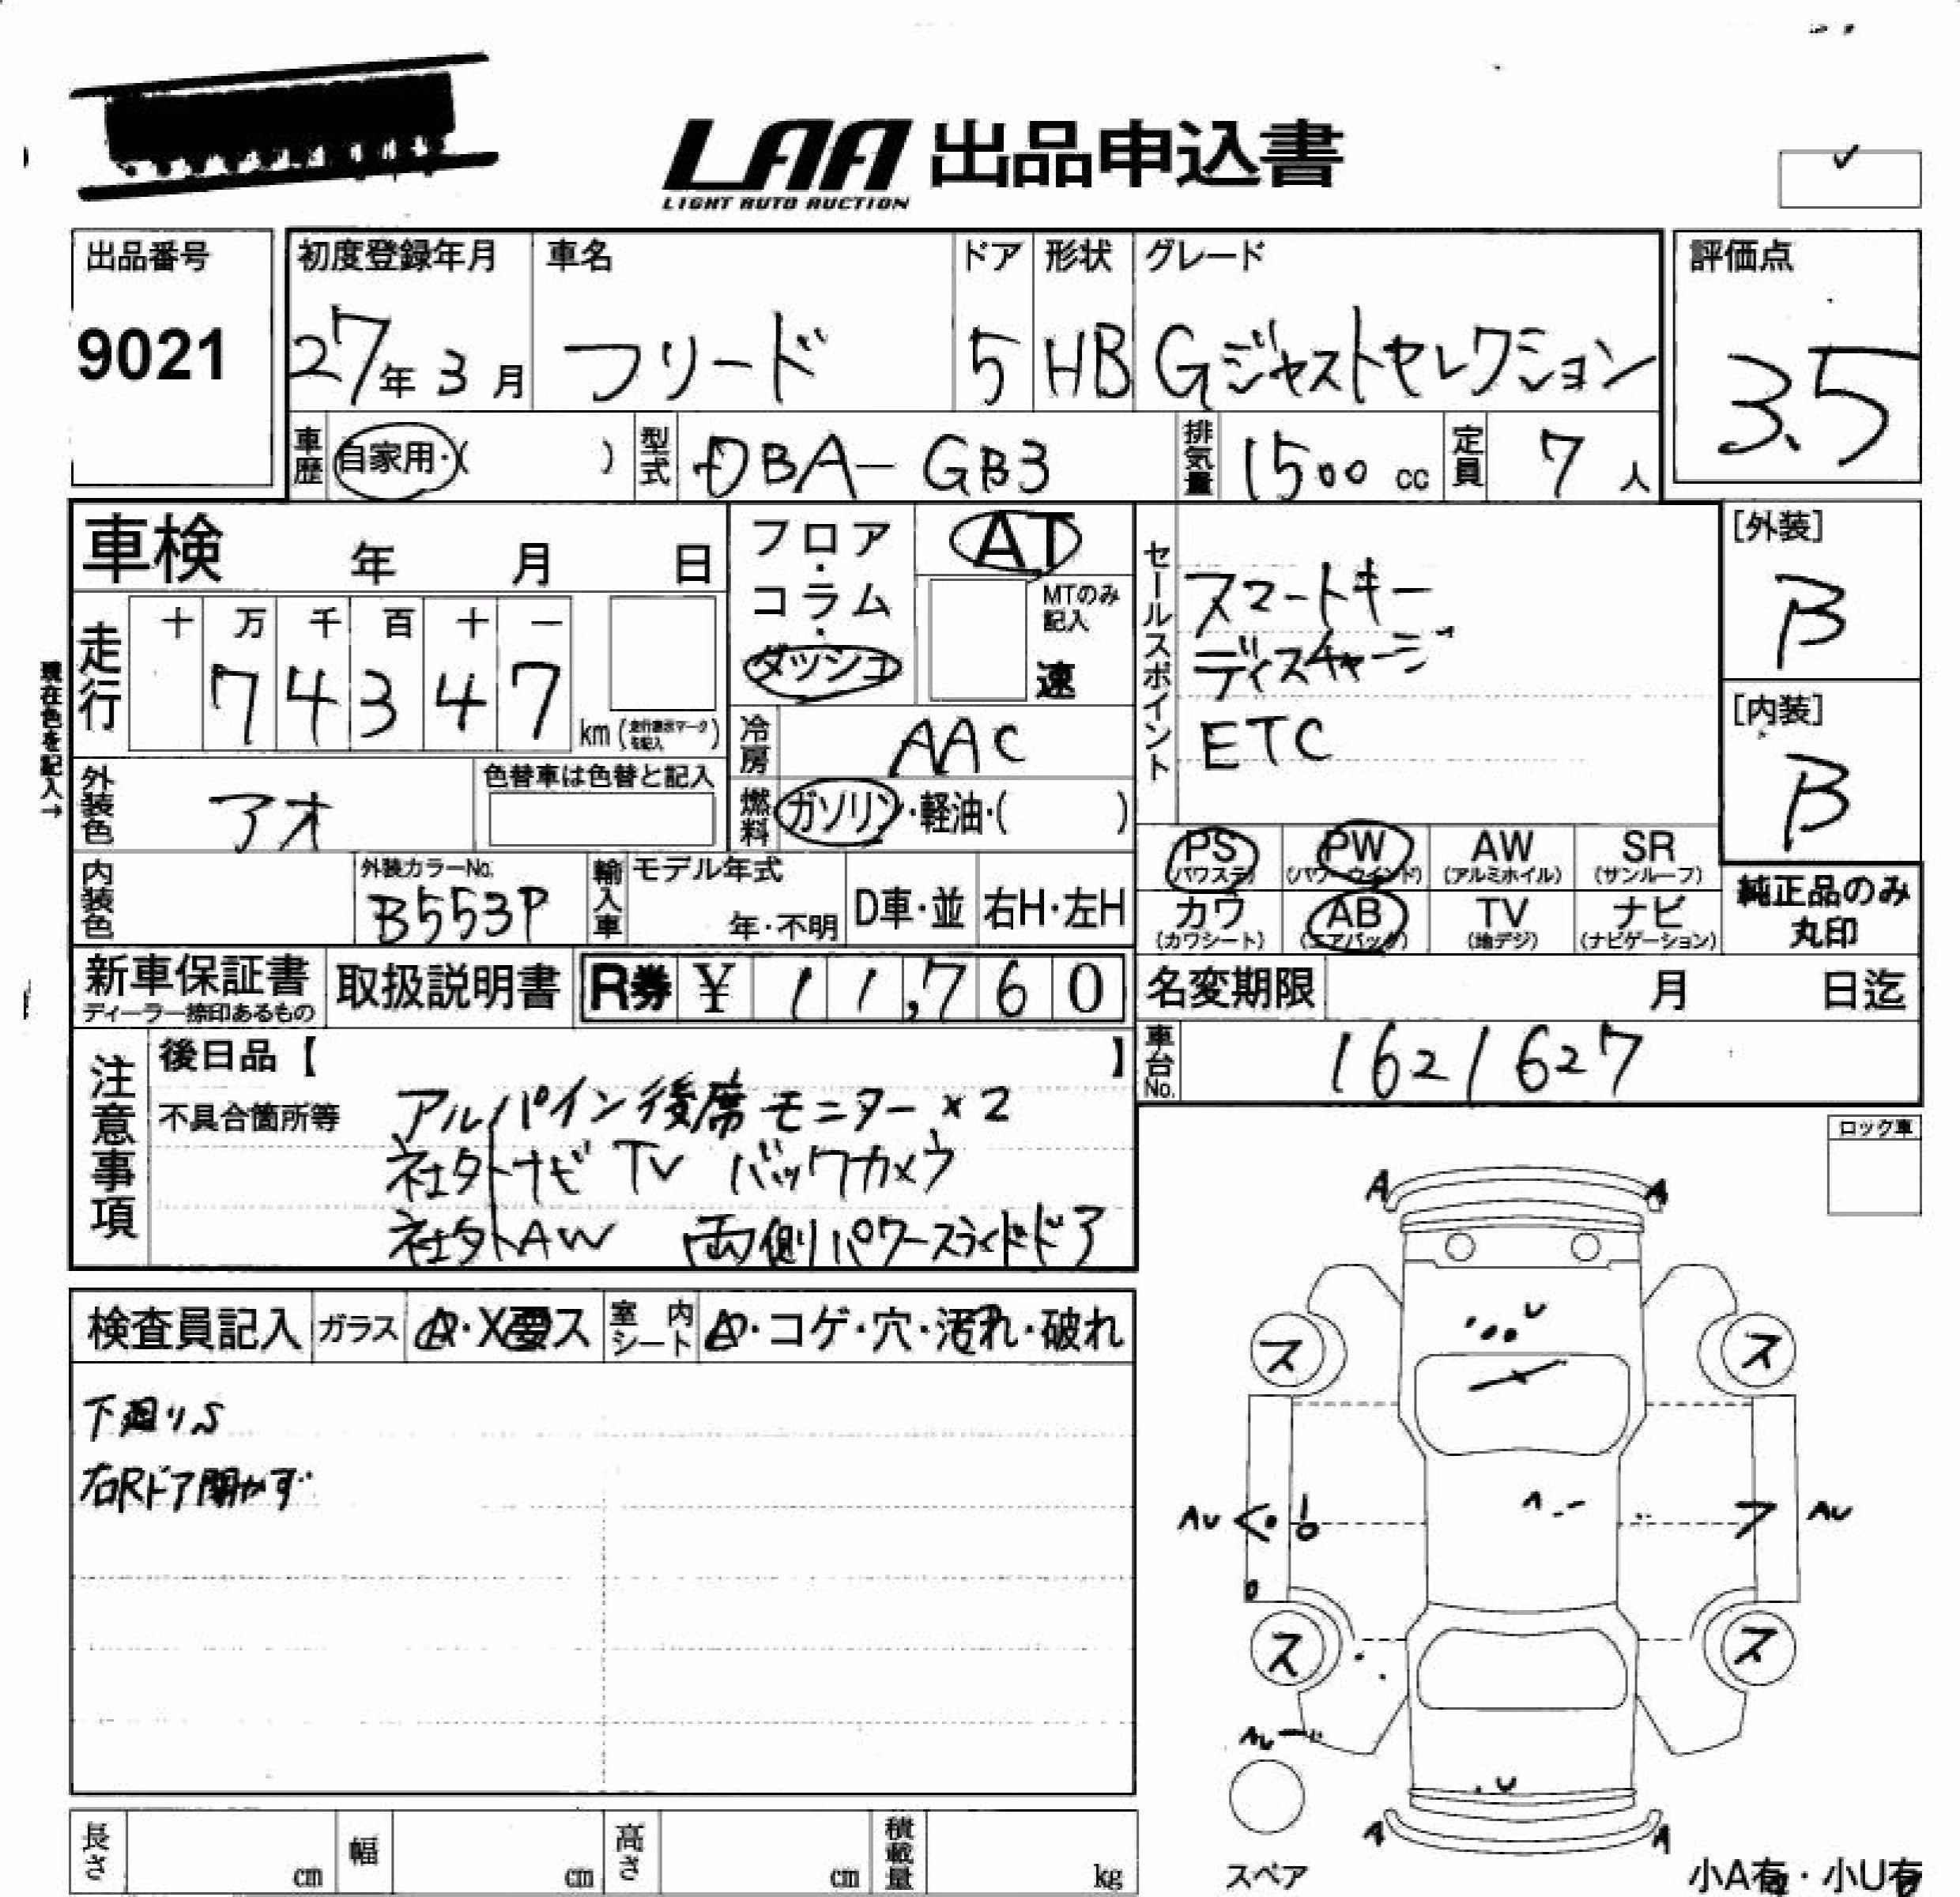 LAA 出品申込書
LIGHT AUTO AUCTION
出品番号 初度登録年月 車名 ドア 形状 グレード 評価点
9021 27年3月 フリード 5 HB Gジャストセレクション 3.5
車歴 自家用・( ) 型式 DBA-GB3 排気量 1500cc 定員 7人
車検 年 月 日
フロア・コラム・ダッシュ
AT
MTのみ記入
速
セールスポイント
スマートキー
ディスチャージ
ETC
[外装]
B
[内装]
B
走行 十 万 千 百 十 一
74347 km(走行表示マークを記入)
現在色を記入→
冷房 AAC
外装色 アオ 色替車は色替と記入
燃料 ガソリン・軽油・( )
PS AB PW AW SR
(パワステ) (パワーウインド) (アルミホイル) (サンルーフ)
カワ AB TV ナビ
(カワシート) (エアバック) (地デジ) (ナビゲーション)
純正品のみ
丸印
内装色 外装カラーNo. B553P 輸入車 モデル年式 年・不明 D車・並 右H・左H
新車保証書 取扱説明書 R券 ¥ 11,760
ディーラー捺印あるもの
名変期限 月 日迄
車台No. 1621627
注意事項
後日品【 】
不具合箇所等 アルパイン後席モニター×2
社外ナビ TV バックカメラ
社外AW 両側パワースライドドア
ロック車
検査員記入 ガラス A・X要ス 室内シート ・コゲ・穴・汚れ・破れ
下廻りS
右Rドア開かず
A A
U
ス ス
AU AU
ス ス
AU
U
A A
スペア
小A有・小U有
長さ cm 幅 cm 高さ cm 積載量 kg